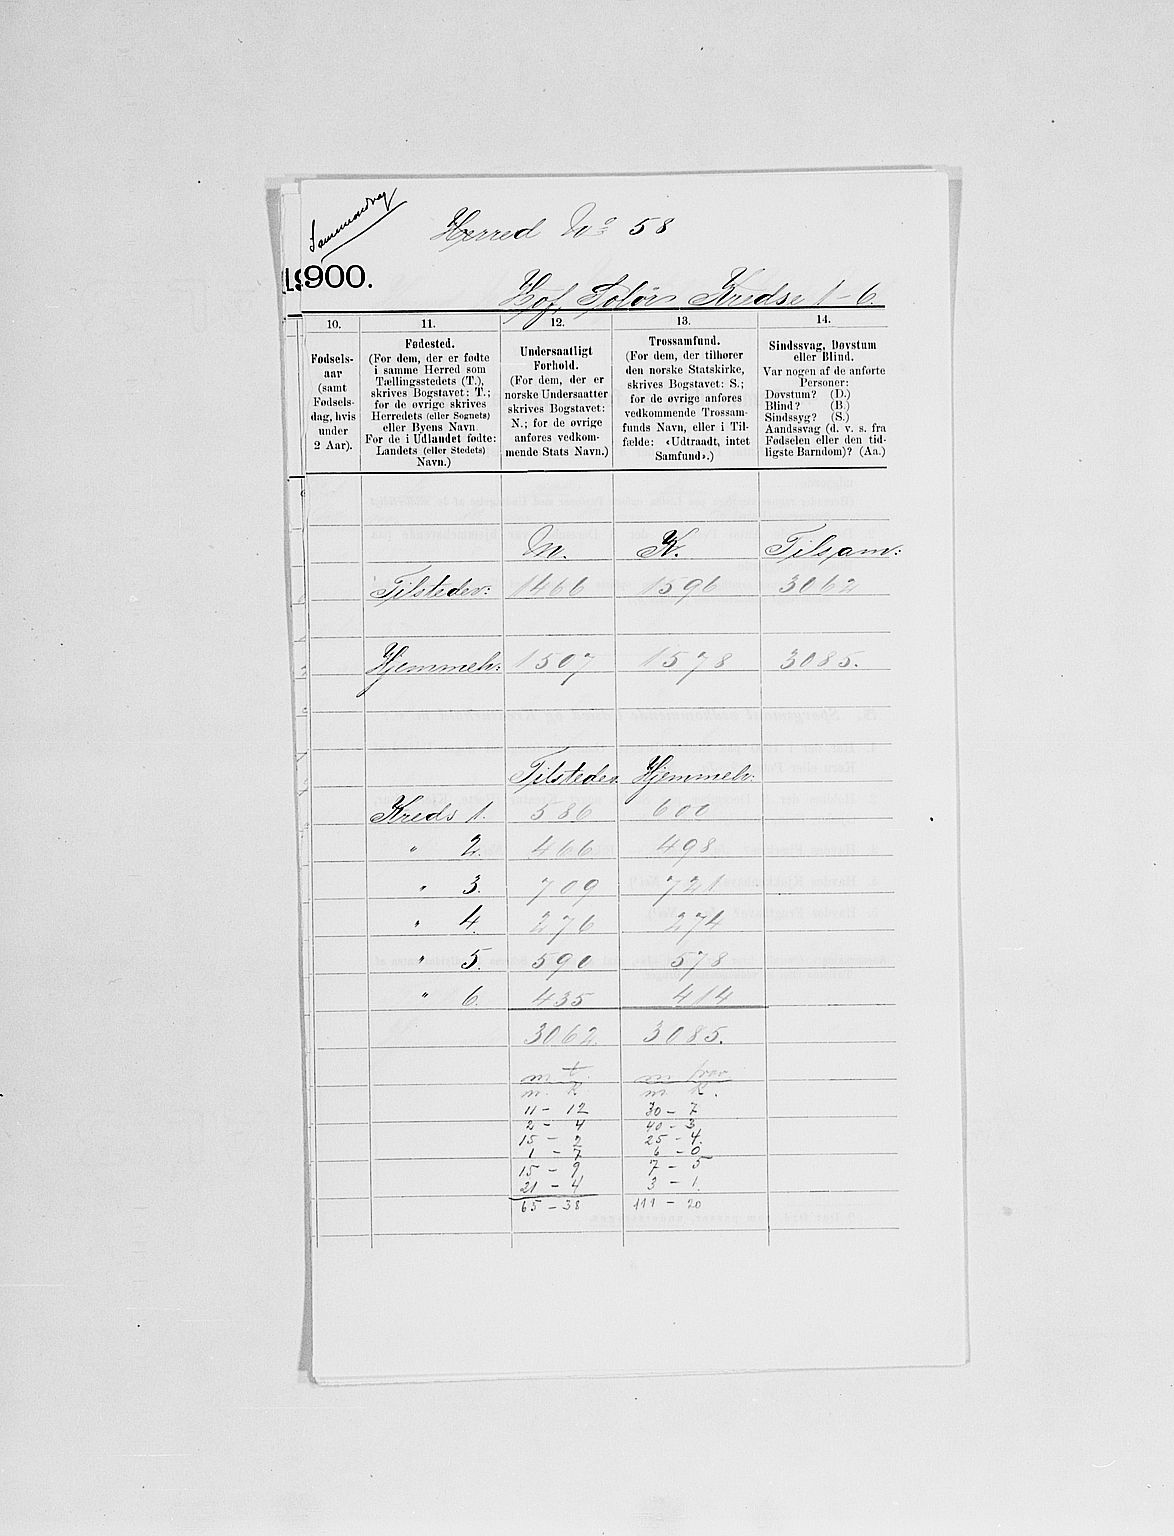 Sammendrag
Herred No 58
1900.
Hof, Solør Kredse 1-6.
10.
Fødsels-
aar
(samt
Fødsels-
dag, hvis
under
2 Aar).
11.
Fødested.
(For dem, der er fødte
i samme Herred som
Tællingsstedets (T.),
skrives Bogstavet: T.;
for de øvrige skrives
Herredets (eller Sognets)
eller Byens Navn.
For de i Udlandet fødte:
Landets (eller Stedets)
Navn.)
12.
Undersaatligt
Forhold.
(For dem, der er
norske Undersaatter
skrives Bogstavet:
N.; for de øvrige
anføres vedkom-
mende Stats Navn.)
13.
Trossamfund.
(For dem, der tilhører
den norske Statskirke,
skrives Bogstavet: S.;
for de øvrige anføres
vedkommende Trossam-
funds Navn, eller i Til-
fælde: «Udtraadt, intet
Samfund».)
14.
Sindssvag, Døvstum
eller Blind.
Var nogen af de anførte
Personer:
Døvstum? (D.)
Blind? (B.)
Sindssyg? (S.)
Aandssvag (d. v. s. fra
Fødselen eller den tid-
ligste Barndom)? (Aa.)
M. K. Tilsam:
Tilstedev: 1466 1596 3062
Hjemmeh: 1507 1578 3085.
Tilstedev. Hjemmeh:
Kreds 1. 586 600
" 2. 466 498
" 3. 709 721
" 4. 276 274
" 5. 590 578
" 6. 435 414
3062. 3085.
m t. m frav
m. k m k.
11 - 12 30 - 7
2 - 4 40 - 3
15 - 2 25 - 4.
1 - 7 6 - 0
15 - 9 7 - 5
21 - 4 3 - 1.
65 - 38 111 - 20